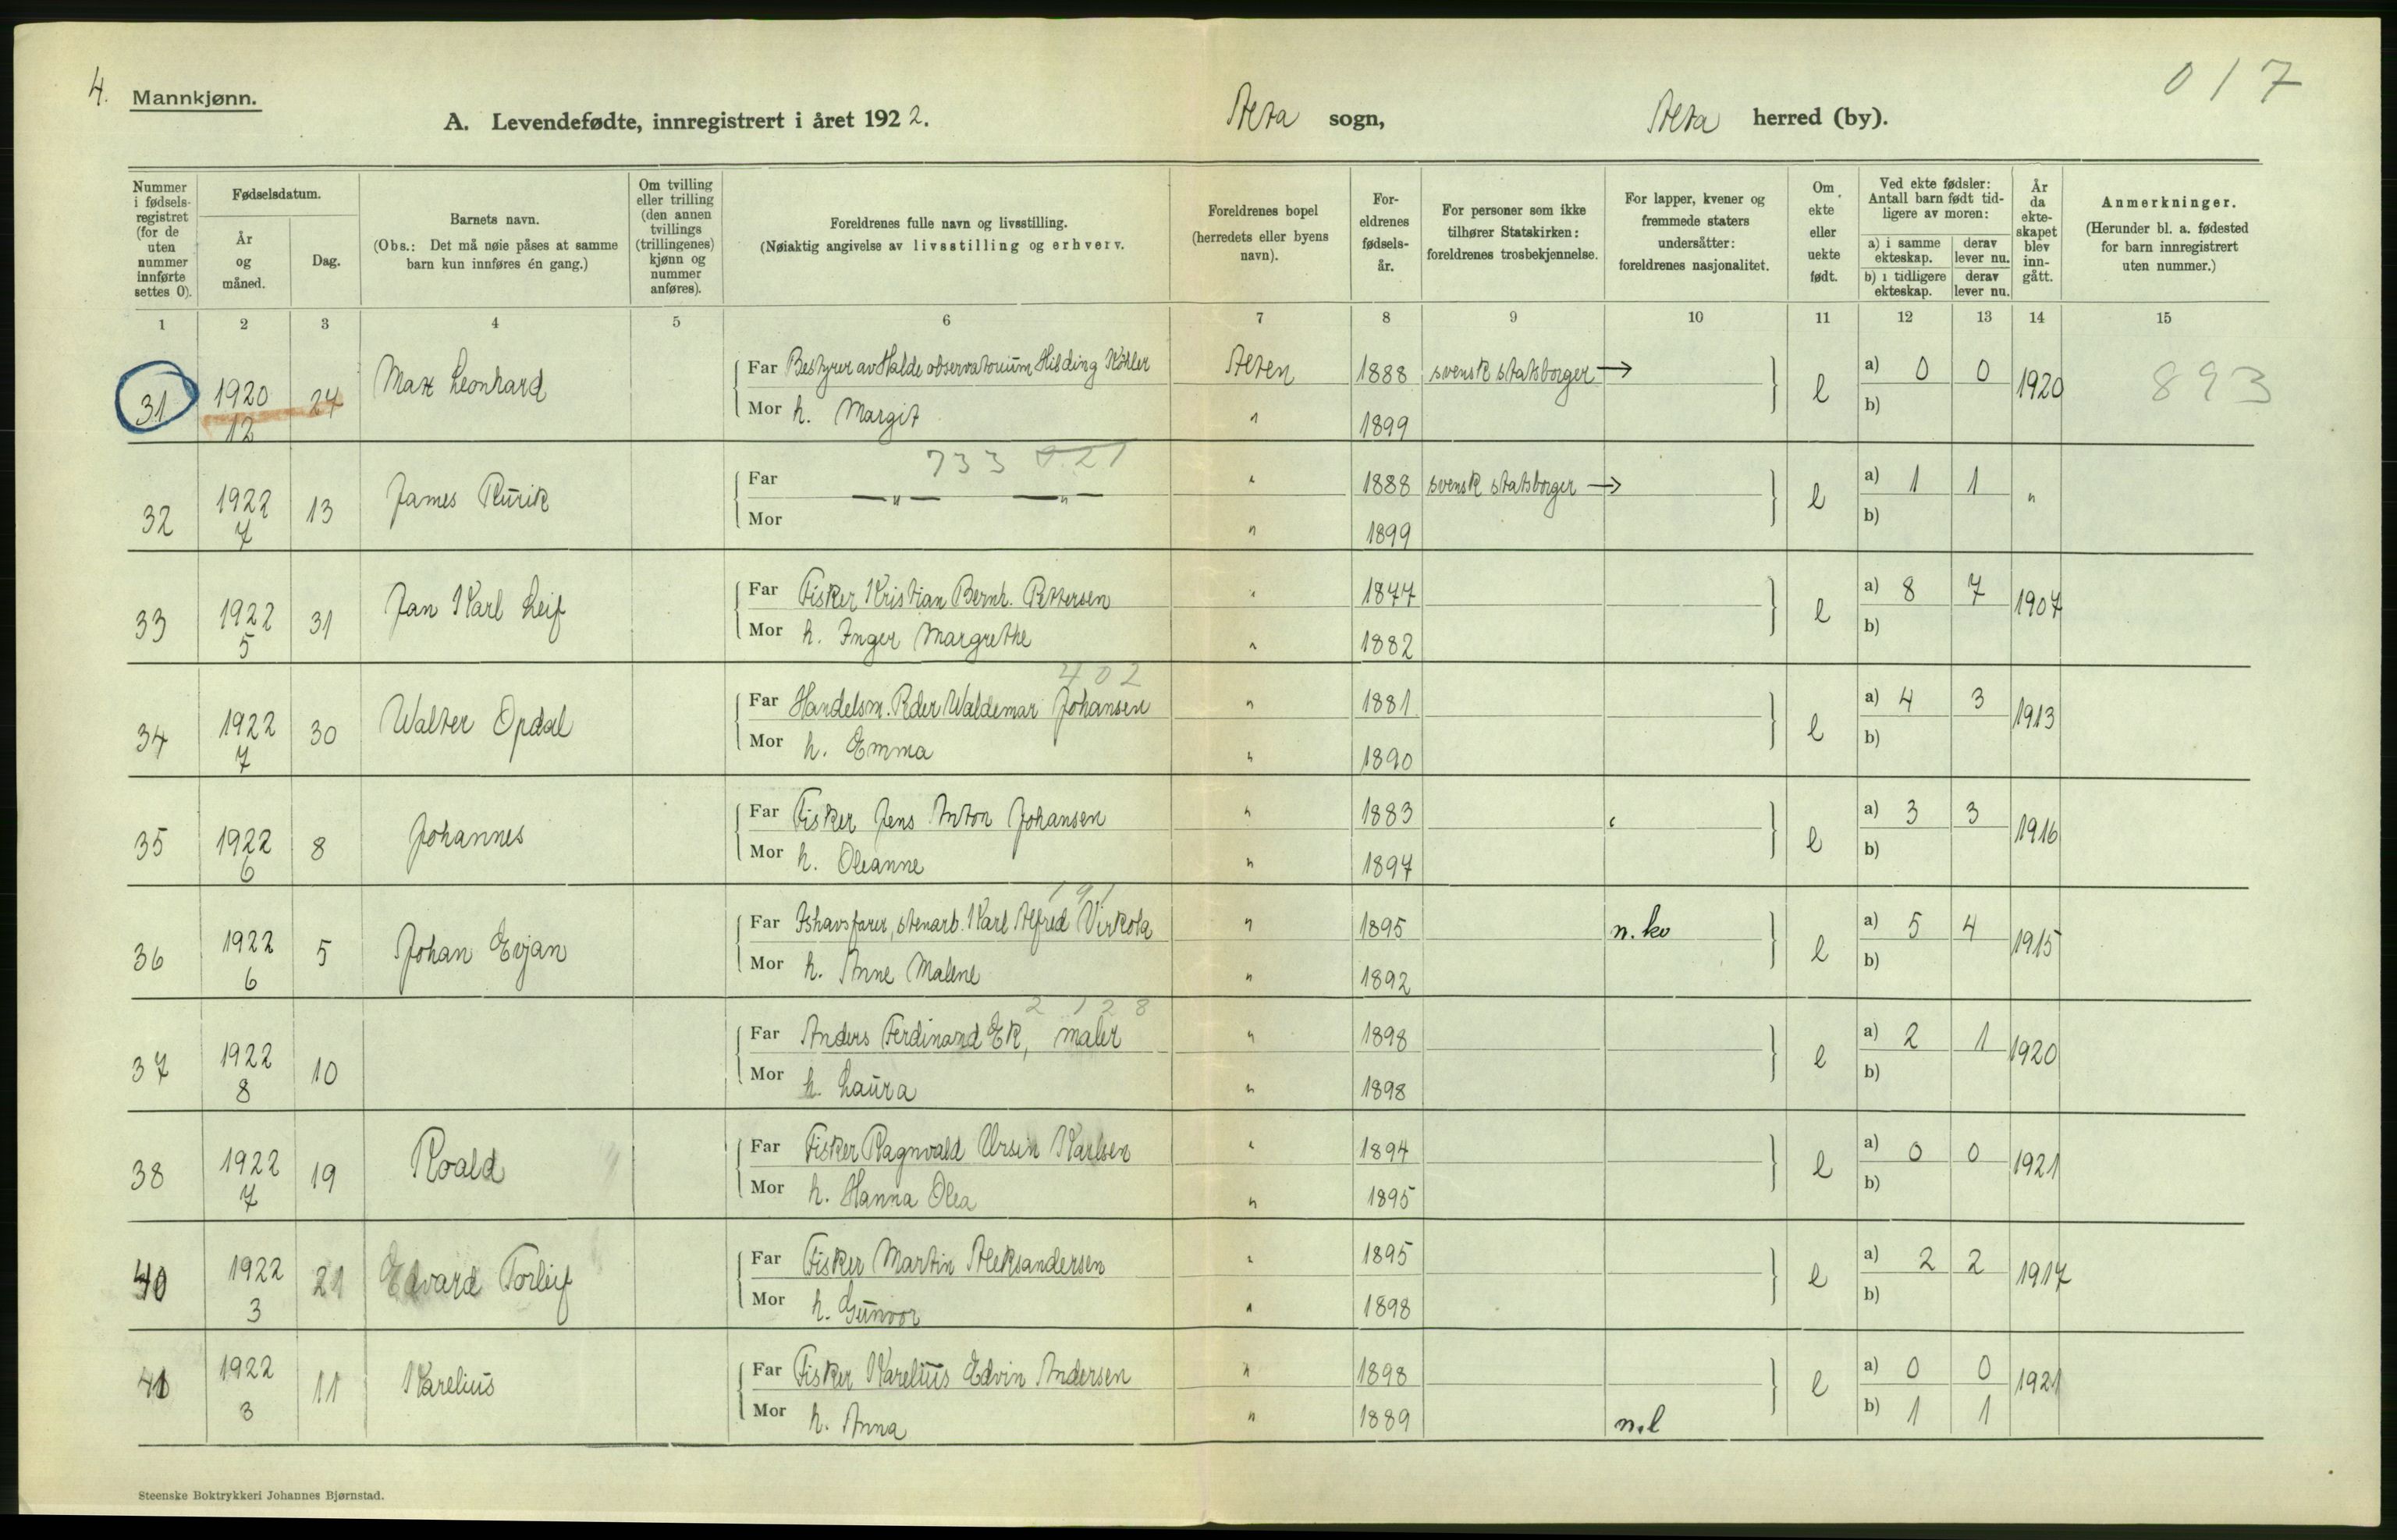 4.
Mannkjønn.
0 1 7
A. Levendefødte, innregistrert i året 1922.
Alta sogn,
Alta herred (by).
Nummer i fødselsregistret (for de uten nummer innførte settes 0).
Fødselsdatum.
År og måned.
Dag.
Barnets navn.
(Obs.: Det må nøie påses at samme barn kun innføres én gang.)
Om tvilling eller trilling (den annen tvillings (trillingenes) kjønn og nummer anføres).
Foreldrenes fulle navn og livsstilling.
(Nøiaktig angivelse av livsstilling og erhverv.
Foreldrenes bopel (herredets eller byens navn).
Foreldrenes fødselsår.
For personer som ikke tilhører Statskirken: foreldrenes trosbekjennelse.
For lapper, kvener og fremmede staters undersåtter: foreldrenes nasjonalitet.
Om ekte eller uekte født.
Ved ekte fødsler: Antall barn født tidligere av moren:
a) i samme ekteskap. derav lever nu.
b) i tidligere ekteskap. derav lever nu.
År da ekteskapet blev inngått.
Anmerkninger.
(Herunder bl. a. fødested for barn innregistrert uten nummer.)
1 2 3 4 5 6 7 8 9 10 11 12 13 14 15
31 1920 12 24 Max Leonhard Far Bestyrer av Halde observatorium Hilding Köhler Alten 1888 svensk statsborger → e a) 0 0 1920 893
Mor h. Margit " 1899 b)
733 021
32 1922 7 13 James Rurik Far —"— —"— " 1888 svensk statsborger → e a) 1 1 "
Mor " 1899 b)
33 1922 5 31 Jan Karl Leif Far Fisker Kristian Bernh. Pettersen " 1877 e a) 8 7 1907
Mor h. Inger Margrethe " 1882 b)
402
34 1922 7 30 Walter Opdal Far Handelsm. Peder Waldemar Johansen " 1881 e a) 4 3 1913
Mor h. Emma " 1890 b)
35 1922 6 8 Johannes Far Fisker Jens Anton Johansen " 1883 e a) 3 3 1916
Mor h. Oleanne " 1897 b)
191
36 1922 6 5 Johan Evjan Far Ishavsfarer, stenarb. Karl Alfred Virkola " 1895 n. kv e a) 5 4 1915
Mor h. Anne Malene " 1892 b)
2 128
37 1922 8 10 Far Anders Ferdinand Ek, maler " 1898 e a) 2 1 1920
Mor h. Laura " 1898 b)
38 1922 7 19 Roald Far Fisker Ragnvald Ursin Karlsen " 1894 e a) 0 0 1921
Mor h. Hanna Olea " 1895 b)
40 1922 3 21 Edvard Torleif Far Fisker Martin Aleksandersen " 1895 e a) 2 2 1917
Mor h. Gunvor " 1898 b)
41 1922 3 11 Karelius Far Fisker Karelius Edvin Andersen " 1898 e a) 0 0 1921
Mor h. Anna " 1889 n.l b) 1 1
Steenske Boktrykkeri Johannes Bjørnstad.